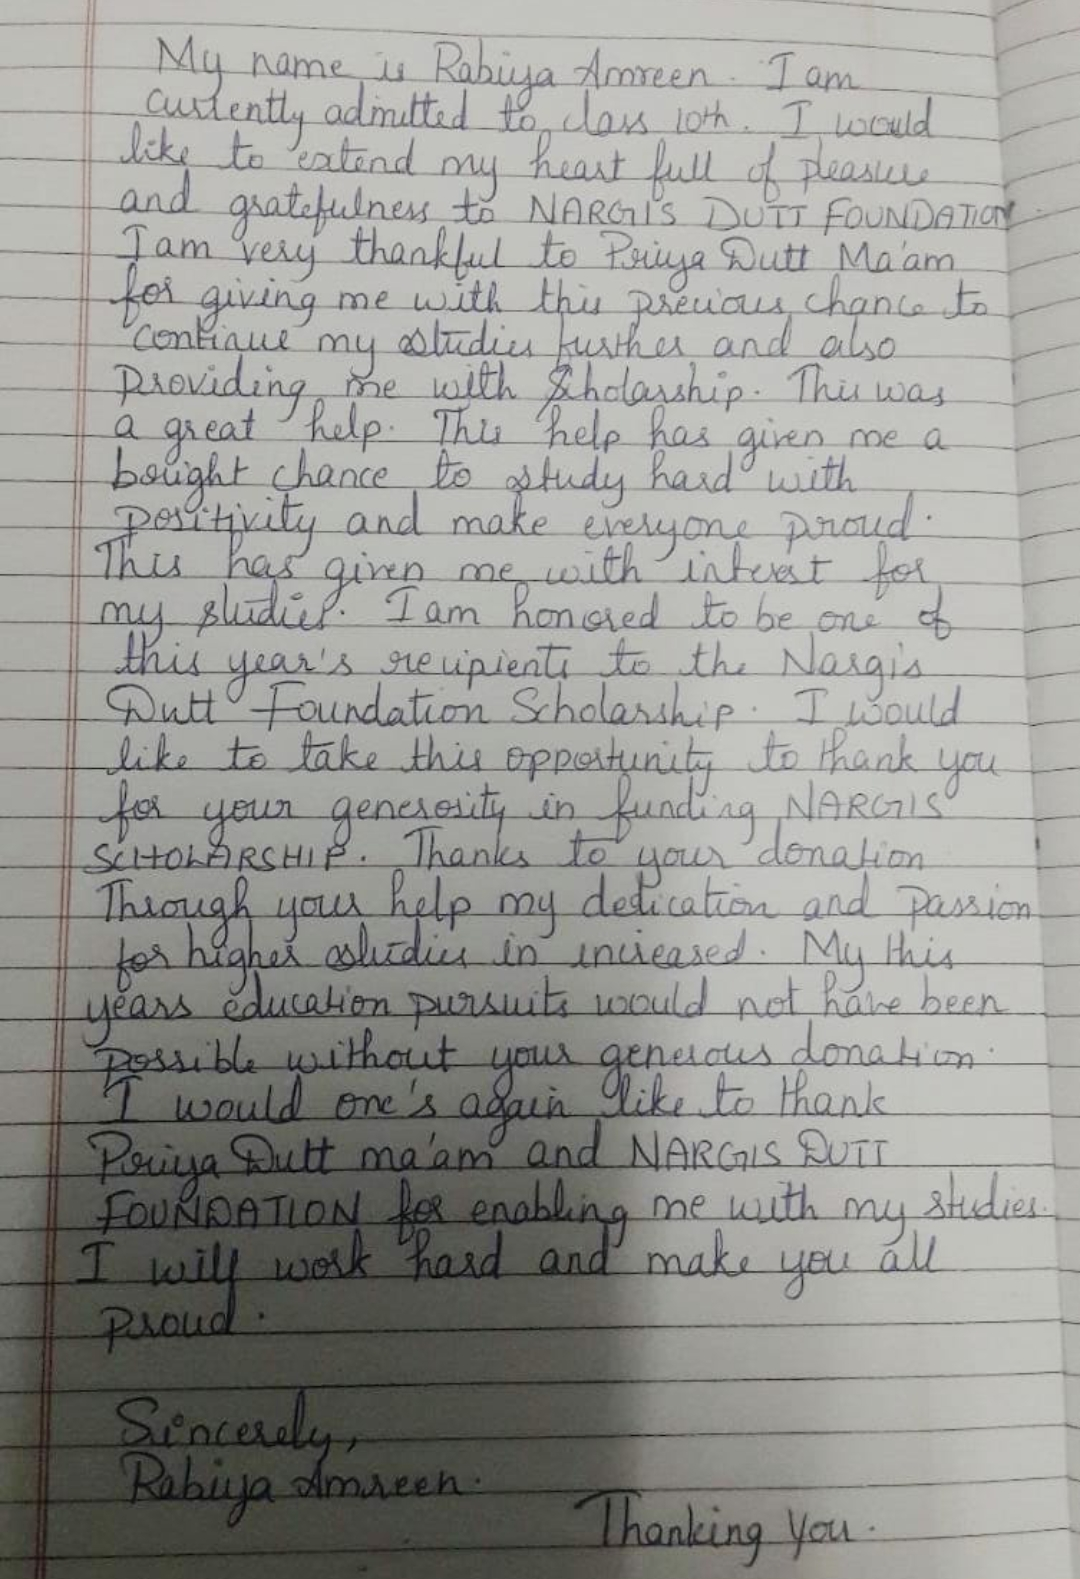 My name is Rabiya Amreen. I am
currently admitted to class 10th. I would
like to extend my heart full of pleasure
and gratefulness to NARGIS DUTT FOUNDATION
I am very thankful to Priya Dutt Ma'am
for giving me with this precious chance to
continue my studies further and also
Providing me with Scholarship. This was
a great help. This help has given me a
bought chance to study hard with
positivity and make everyone proud.
This has given me with interest for
my studies. I am honored to be one of
this year's recipients to the Nargis
Dutt Foundation Scholarship. I would
like to take this opportunity to thank you
for your generosity in funding NARGIS
SCHOLARSHIP. Thanks to your donation
Through your help my dedication and Passion
for higher studies in increased. My this
years education pursuits would not have been
possible without your generous donation.
I would one's again like to thank
Priya Dutt ma'am and NARGIS DUTT
FOUNDATION for enabling me with my studies.
I will work hard and make you all
proud.
Sincerely,
Rabiya Amreen.
Thanking you.